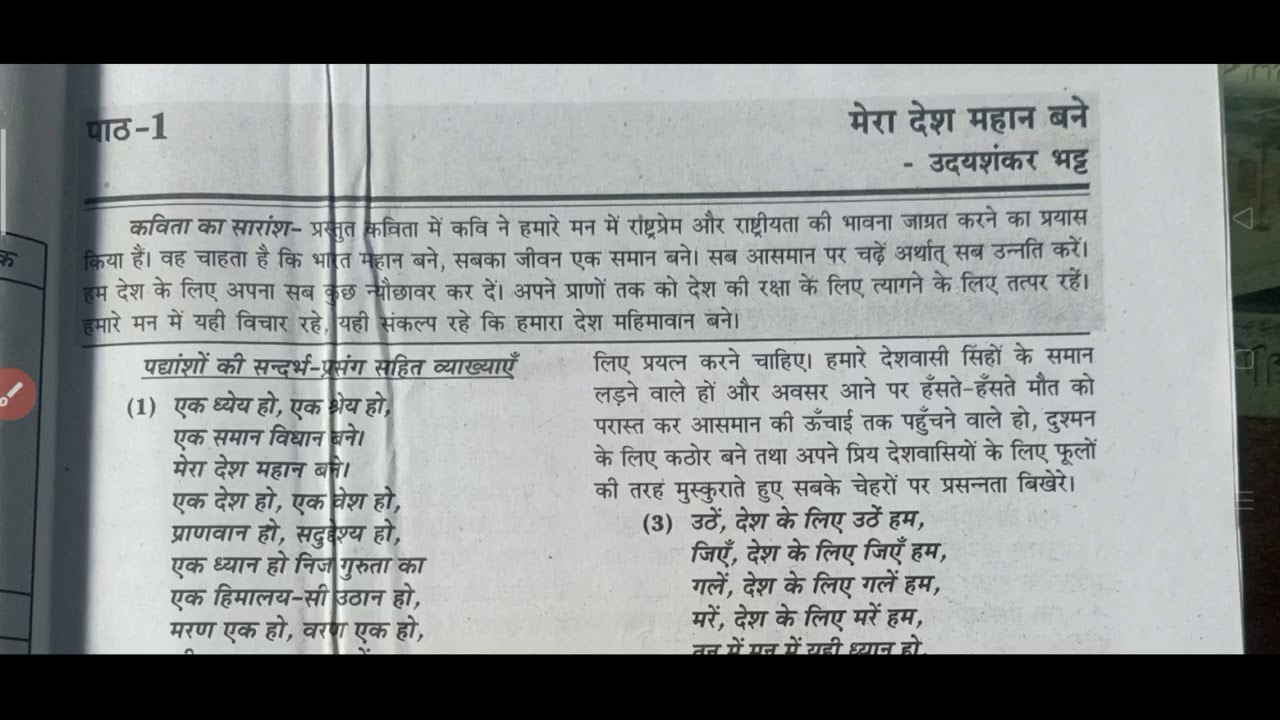 पाठ-1
मेरा देश महान बने
- उदयशंकर भट्ट
कविता का सारांश- प्रस्तुत कविता में कवि ने हमारे मन में राष्ट्रप्रेम और राष्ट्रीयता की भावना जाग्रत करने का प्रयास
किया हैं। वह चाहता है कि भारत महान बने, सबका जीवन एक समान बने। सब आसमान पर चढ़ें अर्थात् सब उन्नति करें।
हम देश के लिए अपना सब कुछ न्यौछावर कर दें। अपने प्राणों तक को देश की रक्षा के लिए त्यागने के लिए तत्पर रहें।
हमारे मन में यही विचार रहे, यही संकल्प रहे कि हमारा देश महिमावान बने।
पद्यांशों की सन्दर्भ-प्रसंग सहित व्याख्याएँ
(1) एक ध्येय हो, एक श्रेय हो,
एक समान विधान बने।
मेरा देश महान बने।
एक देश हो, एक वेश हो,
प्राणवान हो, सदुद्देश्य हो,
एक ध्यान हो निज गुरुता का
एक हिमालय-सी उठान हो,
मरण एक हो, वरण एक हो,
लिए प्रयत्न करने चाहिए। हमारे देशवासी सिंहों के समान
लड़ने वाले हों और अवसर आने पर हँसते-हँसते मौत को
परास्त कर आसमान की ऊँचाई तक पहुँचने वाले हो, दुश्मन
के लिए कठोर बने तथा अपने प्रिय देशवासियों के लिए फूलों
की तरह मुस्कुराते हुए सबके चेहरों पर प्रसन्नता बिखेरे।
(3) उठें, देश के लिए उठें हम,
जिएँ, देश के लिए जिएँ हम,
गलें, देश के लिए गलें हम,
मरें, देश के लिए मरें हम,
तन में मन में यही ध्यान हो,